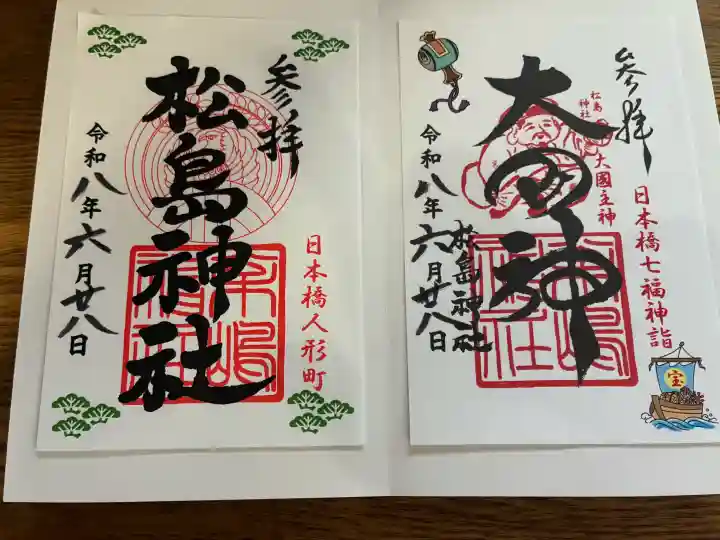 参拝
松島神社
令和八年六月廿八日
日本橋人形町
参拝
松島
神社
大国神
大國主神
松島神社
令和八年六月廿八日
日本橋七福神詣
宝